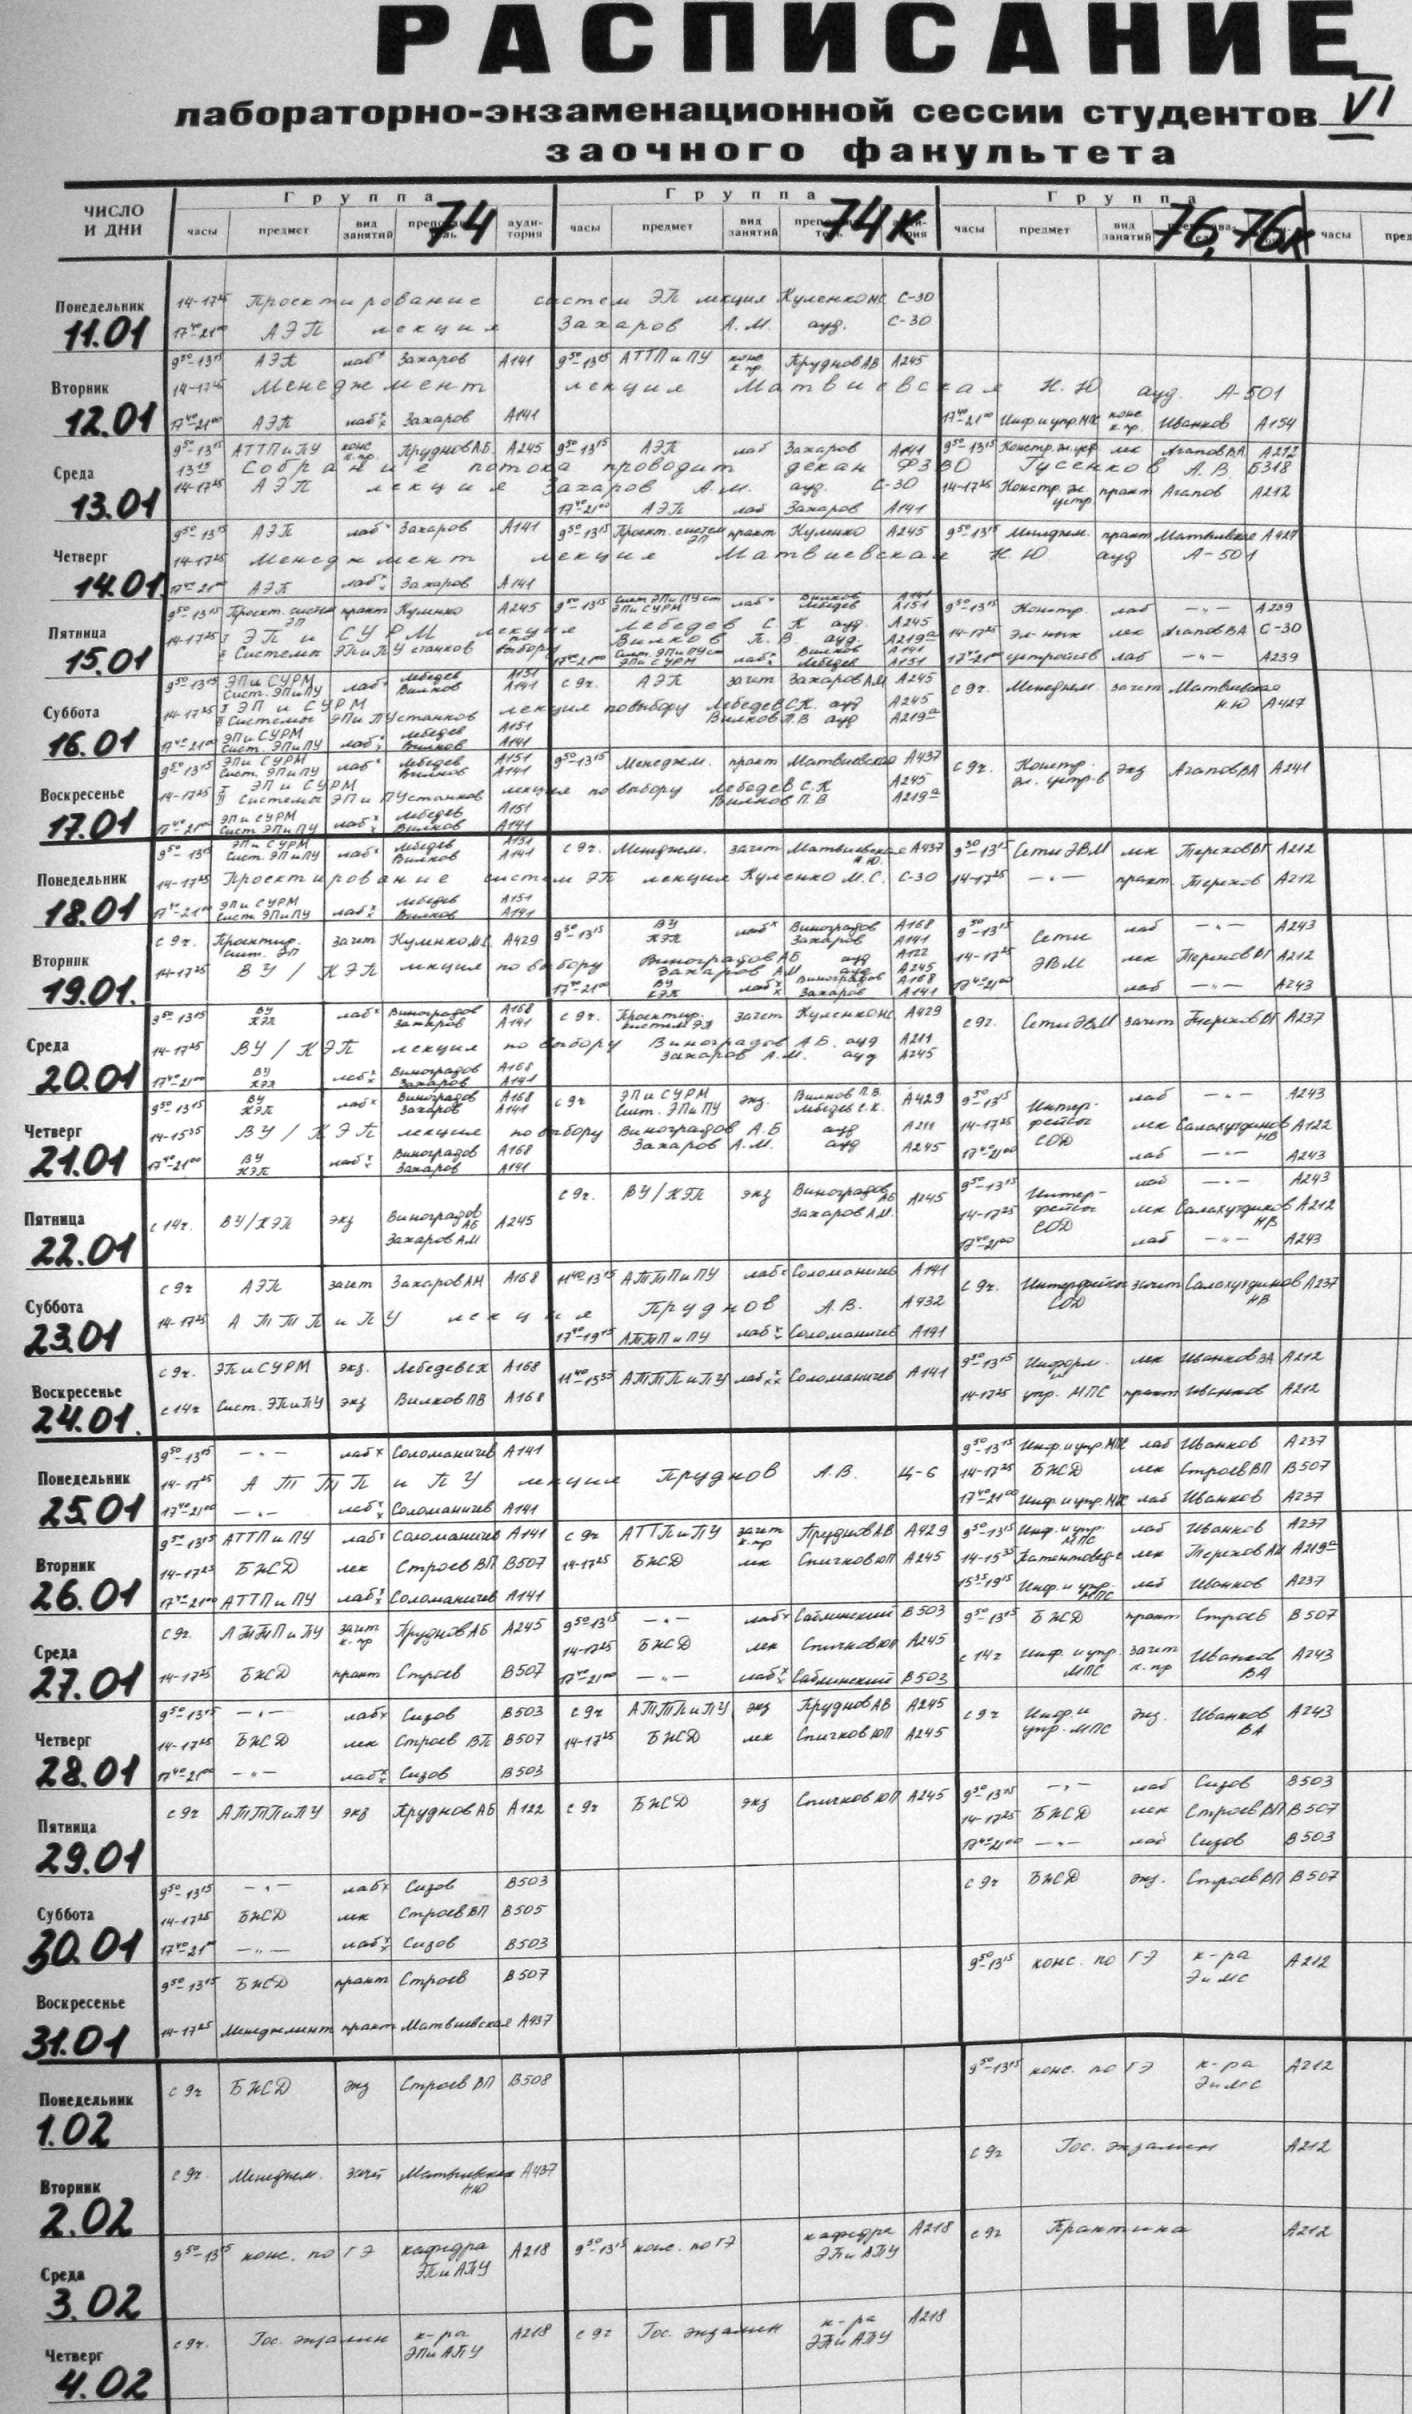 РАСПИСАНИЕ
лабораторно-экзаменационной сессии студентов VI
заочного факультета
ЧИСЛО И ДНИ
Группа 74 Группа 74К Группа 76, 76К
часы предмет вид занятий аудитория часы предмет вид занятий часы предмет вид занятий часы
Понедельник 11.01
14-17²⁵ Проектирование систем ЭП лекция С-30
17⁴⁰-21⁰⁰ АЭП лекция Захаров А.М. ауд. С-30
Вторник 12.01
9⁵⁰-13¹⁵ АЭП лаб Захаров А141 9⁵⁰-13¹⁵ АТТПиПУ конс к.пр. Пруднов АВ А245
14-17²⁵ Менеджмент лекция Матвиевская Н.Ю ауд. А-501
17⁴⁰-21⁰⁰ АЭП лаб Захаров А141 17⁴⁰-21⁰⁰ Инф.и упр.МПС конс к.пр. Иванков А154
Среда 13.01
9⁵⁰-13¹⁵ АТТПиПУ конс к.пр. Пруднов А245 9⁵⁰-13¹⁵ АЭП лаб Захаров А141 9⁵⁰-13¹⁵ лек Агапов ВА А212
13¹⁵ Собрание потока проводит декан ФЗВО Гусенков А.В. Б318
14-17²⁵ АЭП лекция Захаров А.М. ауд. С-30 14-17²⁵ Констр. эл. устр практ Агапов А212
17⁴⁰-21⁰⁰ АЭП лаб Захаров А141
Четверг 14.01
9⁵⁰-13¹⁵ АЭП лаб Захаров А141 9⁵⁰-13¹⁵ Проект. систем ЭП практ Куленко А245 9⁵⁰-13¹⁵ Менеджм. практ Матвиевская А427
14-17²⁵ Менеджмент лекция Матвиевская Н.Ю ауд А-501
17⁴⁰-21⁰⁰ АЭП лаб Захаров А141
Пятница 15.01
9⁵⁰-13¹⁵ Проект. систем ЭП практ Куленко А245 9⁵⁰-13¹⁵ ЭПиСУРМ лаб Вилков Лебедев А141 А151 9⁵⁰-13¹⁵ Констр. лаб —„— А239
14-17²⁵ I ЭП и СУРМ лекция Лебедев С.К ауд. А245 14-17²⁵ эл-ных лек Агапов ВА С-30
II Системы ЭПиПУ станков по выбору Вилков П.В. ауд. А219а
17⁴⁰-21⁰⁰ ЭПиСУРМ лаб Вилков Лебедев А141 А151 17⁴⁰-21⁰⁰ устройств лаб —„— А239
Суббота 16.01
9⁵⁰-13¹⁵ ЭПиСУРМ Сист. ЭПиПУ лаб Лебедев Вилков А151 А141 с 9ч. АЭП зачет Захаров АМ А245 с 9ч. Менеджем. зачет Матвиевская Н.Ю А427
14-17²⁵ I ЭП и СУРМ лекция по выбору Лебедев С.К. ауд А245
II Системы ЭПиПУ станков Вилков П.В ауд А219а
17⁴⁰-21⁰⁰ ЭПиСУРМ Сист. ЭПиПУ лаб Лебедев Вилков А151 А141
Воскресенье 17.01
9⁵⁰-13¹⁵ ЭПиСУРМ Сист. ЭПиПУ лаб Лебедев Вилков А151 А141 9⁵⁰-13¹⁵ Менеджм. практ Матвиевская А437 с 9ч. Констр. эл. устр-в экз Агапов ВА А241
14-17²⁵ I ЭП и СУРМ лекция по выбору Лебедев С.К А245
II Системы ЭПиПУ станков Вилков П.В А219а
17⁴⁰-21⁰⁰ ЭПиСУРМ Сист. ЭПиПУ лаб Лебедев Вилков А151 А141
Понедельник 18.01
9⁵⁰-13¹⁵ ЭПиСУРМ Сист. ЭПиПУ лаб Лебедев Вилков А151 А141 с 9ч. Менеджем. зачет Матвиевская Н.Ю. А437 9⁵⁰-13¹⁵ Сети ЭВМ лек Терехов ВГ А212
14-17²⁵ Проектирование систем ЭП лекция Куленко М.С. С-30 14-17²⁵ —„— практ. Терехов А212
17⁴⁰-21⁰⁰ ЭПиСУРМ Сист. ЭПиПУ лаб Лебедев Вилков А151 А141
Вторник 19.01.
с 9ч. Проектир. сист. ЭП зачет Куленко М.С. А429 9⁵⁰-13¹⁵ ВУ КЭП лаб Виноградов Захаров А168 А141 9⁵⁰-13¹⁵ Сети лаб —„— А243
14-17²⁵ ВУ / КЭП лекция по выбору Виноградов АБ ауд А122 Захаров АМ ауд А245 14-17²⁵ ЭВМ лек Терехов ВГ А212
17⁴⁰-21⁰⁰ ВУ КЭП лаб Виноградов Захаров А168 А141 17⁴⁰-21⁰⁰ лаб —„— А243
Среда 20.01
9⁵⁰-13¹⁵ ВУ КЭП лаб Виноградов Захаров А168 А141 с 9ч. Проектир. систем ЭП зачет Куленко МС А429 с 9ч. Сети ЭВМ зачет Терехов ВГ А237
14-17²⁵ ВУ / КЭП лекция по выбору Виноградов А.Б. ауд А211 Захаров А.М. ауд А245
17⁴⁰-21⁰⁰ ВУ КЭП лаб Виноградов Захаров А168 А141
Четверг 21.01
9⁵⁰-13¹⁵ ВУ КЭП лаб Виноградов Захаров А168 А141 с 9ч ЭПиСУРМ Сист. ЭПиПУ экз. Вилков П.В. Лебедев С.К. А429 9⁵⁰-13¹⁵ Интер- лаб —„— А243
14-15³⁵ ВУ / КЭП лекция по выбору Виноградов А.Б ауд А211 Захаров А.М. ауд А245 14-17²⁵ фейсы лек Салахутдинов НВ А122
17⁴⁰-21⁰⁰ ВУ КЭП лаб Виноградов Захаров А168 А141 17⁴⁰-21⁰⁰ СОД лаб —„— А243
Пятница 22.01
с 14ч. ВУ/КЭП экз Виноградов АБ Захаров АМ А245 с 9ч. ВУ/КЭП экз Виноградов АБ Захаров А.М. А245 9⁵⁰-13¹⁵ Интер- лаб —„— А243
14-17²⁵ фейсы лек Салахутдинов НВ А212
17⁴⁰-21⁰⁰ СОД лаб —„— А243
Суббота 23.01
с 9ч. АЭП зачет Захаров АМ А168 11⁴⁰-13¹⁵ АТТПиПУ лаб Соломаничев А141 с 9ч. Интерфейсы СОД зачет Салахутдинов НВ А237
14-17²⁵ АТТП и ПУ лекция Пруднов А.В. А432
17⁴⁰-19¹⁵ АТТПиПУ лаб Соломаничев А141
Воскресенье 24.01.
с 9ч. ЭПиСУРМ экз. Лебедев СК А168 11⁴⁰-15³⁵ АТТПиПУ лаб Соломаничев А141 9⁵⁰-13¹⁵ Информ. и лек Иванков ВА А212
с 14ч Сист. ЭПиПУ экз Вилков ПВ А168 14-17²⁵ упр. МПС практ Иванков А212
Понедельник 25.01
9⁵⁰-13¹⁵ —„— лаб Соломаничев А141 9⁵⁰-13¹⁵ Инф.и упр.МПС лаб Иванков А237
14-17²⁵ АТТП и ПУ лекция Пруднов А.В. Ц-6 14-17²⁵ БЖД лек Строев ВП В507
17⁴⁰-21⁰⁰ —„— лаб Соломаничев А141 17⁴⁰-21⁰⁰ Инф.и упр.МПС лаб Иванков А237
Вторник 26.01
9⁵⁰-13¹⁵ АТТПиПУ лаб Соломаничев А141 с 9ч АТТПиПУ зачет к.пр Пруднов АВ А429 9⁵⁰-13¹⁵ Инф.и упр. МПС лаб Иванков А237
14-17²⁵ БЖД лек Строев ВП В507 14-17²⁵ БЖД лек Спичков ЮП А245 14-15³⁵ Патентовед-е лек Терехов А219а
17⁴⁰-21⁰⁰ АТТПиПУ лаб Соломаничев А141 15³⁵-19¹⁵ Инф.и упр. МПС лаб Иванков А237
Среда 27.01
с 9ч. АТТПиПУ зачет к.пр Пруднов А245 9⁵⁰-13¹⁵ —„— лаб Саблинский В503 9⁵⁰-13¹⁵ БЖД практ Строев В507
14-17²⁵ БЖД практ Строев В507 14-17²⁵ БЖД лек Спичков ЮП А245 с 14ч Инф. и упр. МПС зачет к.пр Иванков ВА А243
17⁴⁰-21⁰⁰ —„— лаб Саблинский В503
Четверг 28.01
9⁵⁰-13¹⁵ —„— лаб Сизов В503 с 9ч АТТПиПУ экз Пруднов АВ А245 с 9ч Инф.и упр. МПС экз. Иванков ВА А243
14-17²⁵ БЖД лек Строев ВП В507 14-17²⁵ БЖД лек Спичков ЮП А245
17⁴⁰-21⁰⁰ —„— лаб Сизов В503
Пятница 29.01
с 9ч АТТПиПУ экз Пруднов А122 с 9ч БЖД экз Спичков ЮП А245 9⁵⁰-13¹⁵ —„— лаб Сизов В503
14-17²⁵ БЖД лек Строев ВП В507
17⁴⁰-21⁰⁰ —„— лаб Сизов В503
Суббота 30.01
9⁵⁰-13¹⁵ —„— лаб Сизов В503 с 9ч БЖД экз. Строев ВП В507
14-17²⁵ БЖД лек Строев ВП В505
17⁴⁰-21⁰⁰ —„— лаб Сизов В503
Воскресенье 31.01
9⁵⁰-13¹⁵ БЖД практ Строев В507 9⁵⁰-13¹⁵ конс. по ГЭ к-ра ЭиМС А212
14-17²⁵ Менеджмент практ Матвиевская А437
Понедельник 1.02
с 9ч БЖД экз Строев ВП В508 9⁵⁰-13¹⁵ конс. по ГЭ к-ра ЭиМС А212
Вторник 2.02
с 9ч. Менеджем. зачет Матвиевская НЮ А437 с 9ч Гос. экзамен А212
Среда 3.02
9⁵⁰-13¹⁵ конс. по ГЭ кафедра ЭПиАПУ А218 9⁵⁰-13¹⁵ конс. по ГЭ кафедра ЭПиАПУ А218 с 9ч Практика А212
Четверг 4.02
с 9ч. Гос. экзамен к-ра ЭПиАПУ А218 с 9ч Гос. экзамен к-ра ЭПиАПУ А218